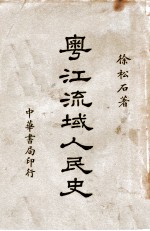 徐松石著
粵江流域人民史
中華書局印行